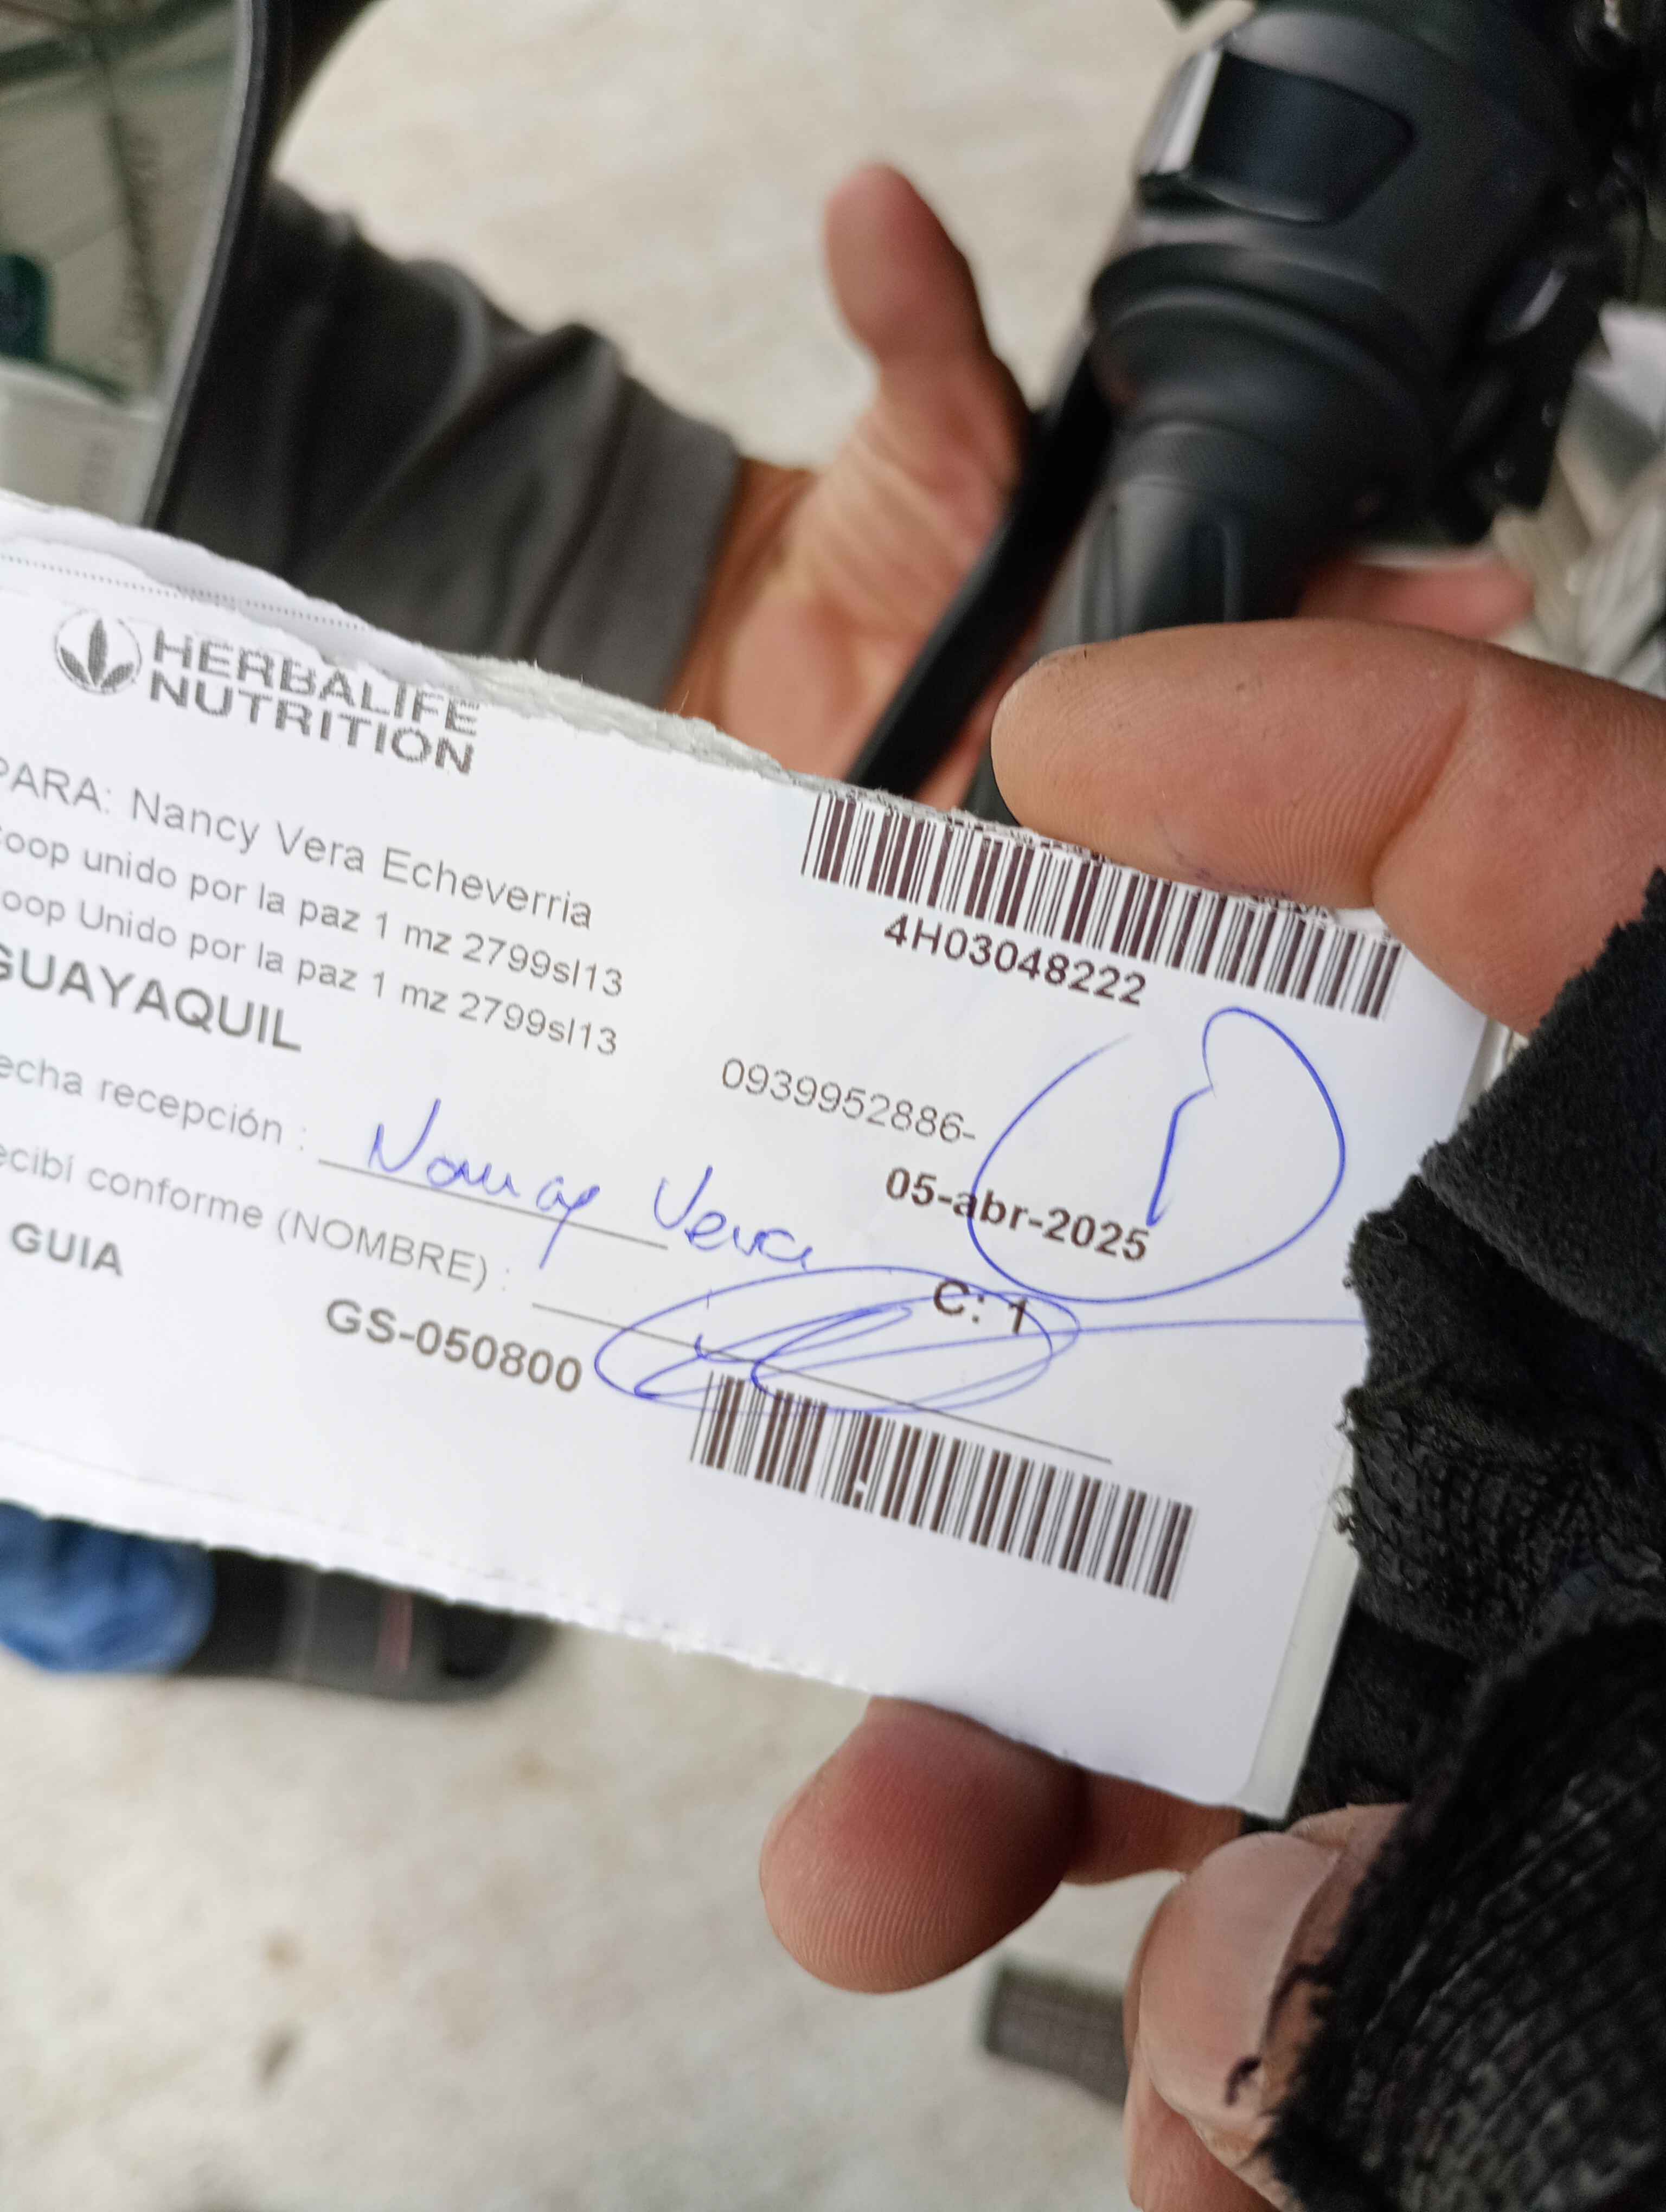 HERBALIFE
NUTRITION
PARA: Nancy Vera Echeverria
Coop unido por la paz 1 mz 2799sl13
Coop Unido por la paz 1 mz 2799sl13
GUAYAQUIL
4H03048222
0939952886-
05-abr-2025
echa recepción : Nancy Vera
C: 1
ecibí conforme (NOMBRE) :
GUIA
GS-050800